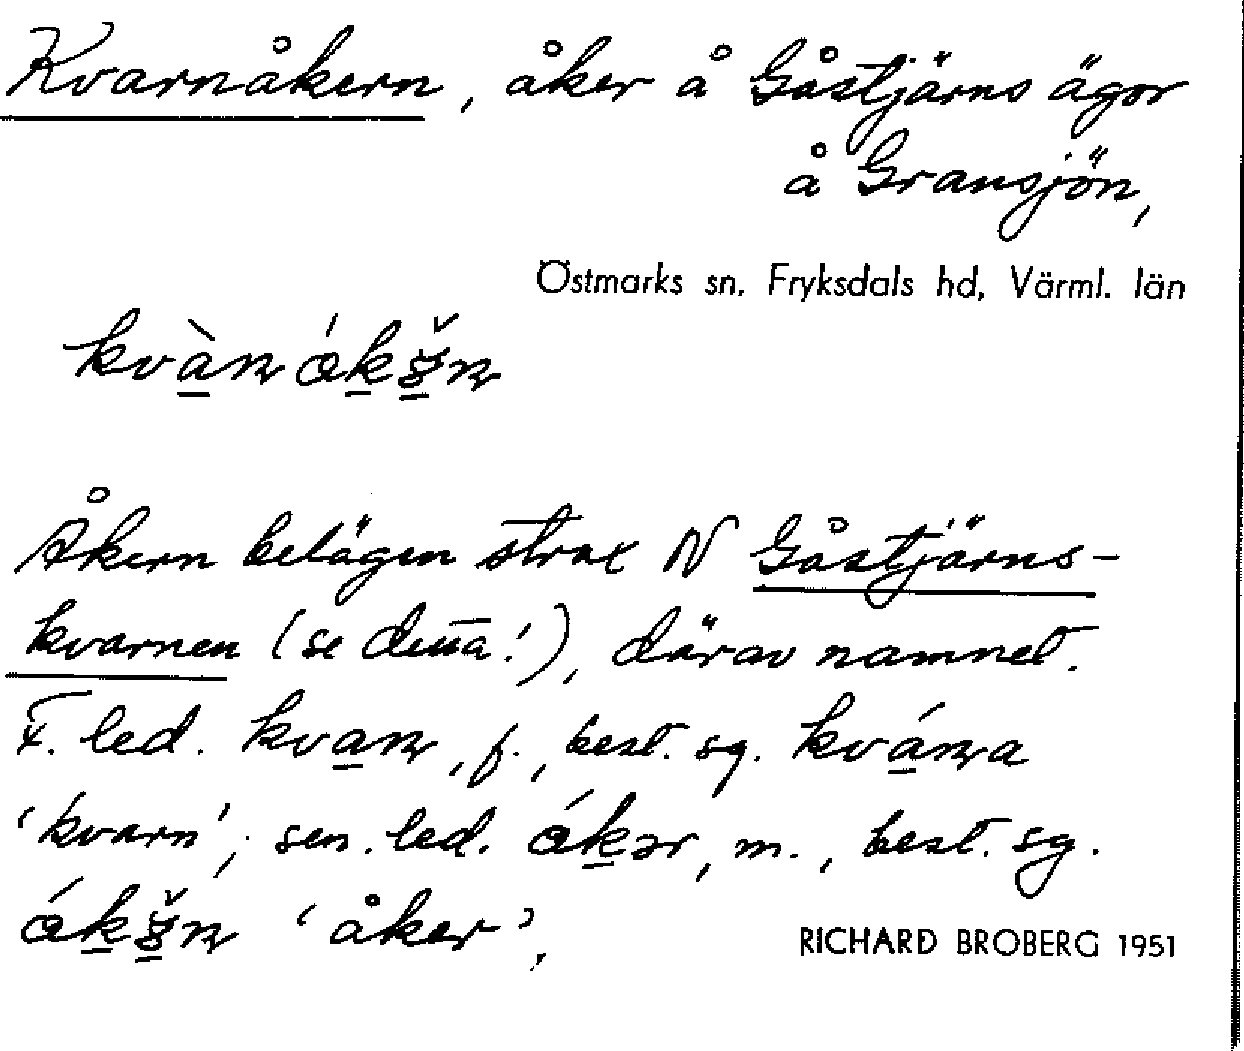 Kvarnåkern, åker å Gåstjärns ägor
å Gransjön,
Östmarks sn. Fryksdals hd, Värml. län
Åkern belägen strax N Gåstjärns-
kvarnen (se denna!), därav namnet.
F. led. kvan, f., best. sg. kvána
'kvarn'; sen. led. ákər, m., best. sg.
'åker',
RICHARD BROBERG 1951